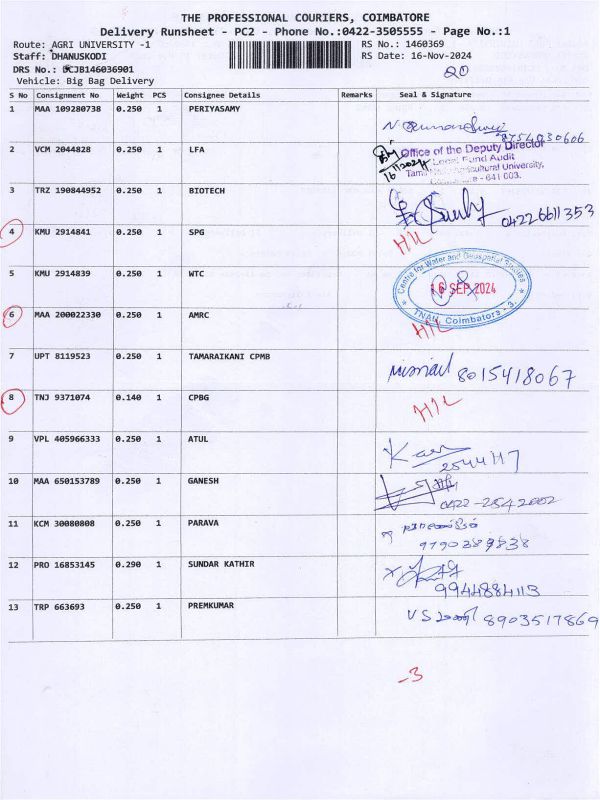 THE PROFESSIONAL COURIERS, COIMBATORE
Delivery Runsheet - PC2 - Phone No.:0422-3505555 - Page No.:1
Route: AGRI UNIVERSITY -1 RS No.: 1460369
Staff: DHANUSKODI RS Date: 16-Nov-2024
DRS No.: CJB146036901
Vehicle: Big Bag Delivery
S No Consignment No Weight PCS Consignee Details Remarks Seal & Signature
1 MAA 109280738 0.250 1 PERIYASAMY
8754030606
2 VCM 2044828 0.250 1 LFA
Office of the Deputy Director
Local Fund Audit
Agricultural University,
- 641 003.
3 TRZ 190844952 0.250 1 BIOTECH
04226611353
4 KMU 2914841 0.250 1 SPG
H/L
5 KMU 2914839 0.250 1 WTC
Centre for Water and Geospatial Studies
16 SEP 2024
TNAU, Coimbatore - 3.
6 MAA 200022330 0.250 1 AMRC
H/L
7 UPT 8119523 0.250 1 TAMARAIKANI CPMB
8015418067
8 TNJ 9371074 0.140 1 CPBG
H/L
9 VPL 405966333 0.250 1 ATUL
10 MAA 650153789 0.250 1 GANESH
0422-2542002
11 KCM 30080808 0.250 1 PARAVA
9790389838
12 PRO 16853145 0.290 1 SUNDAR KATHIR
9944884113
13 TRP 663693 0.250 1 PREMKUMAR
8903517869
-3